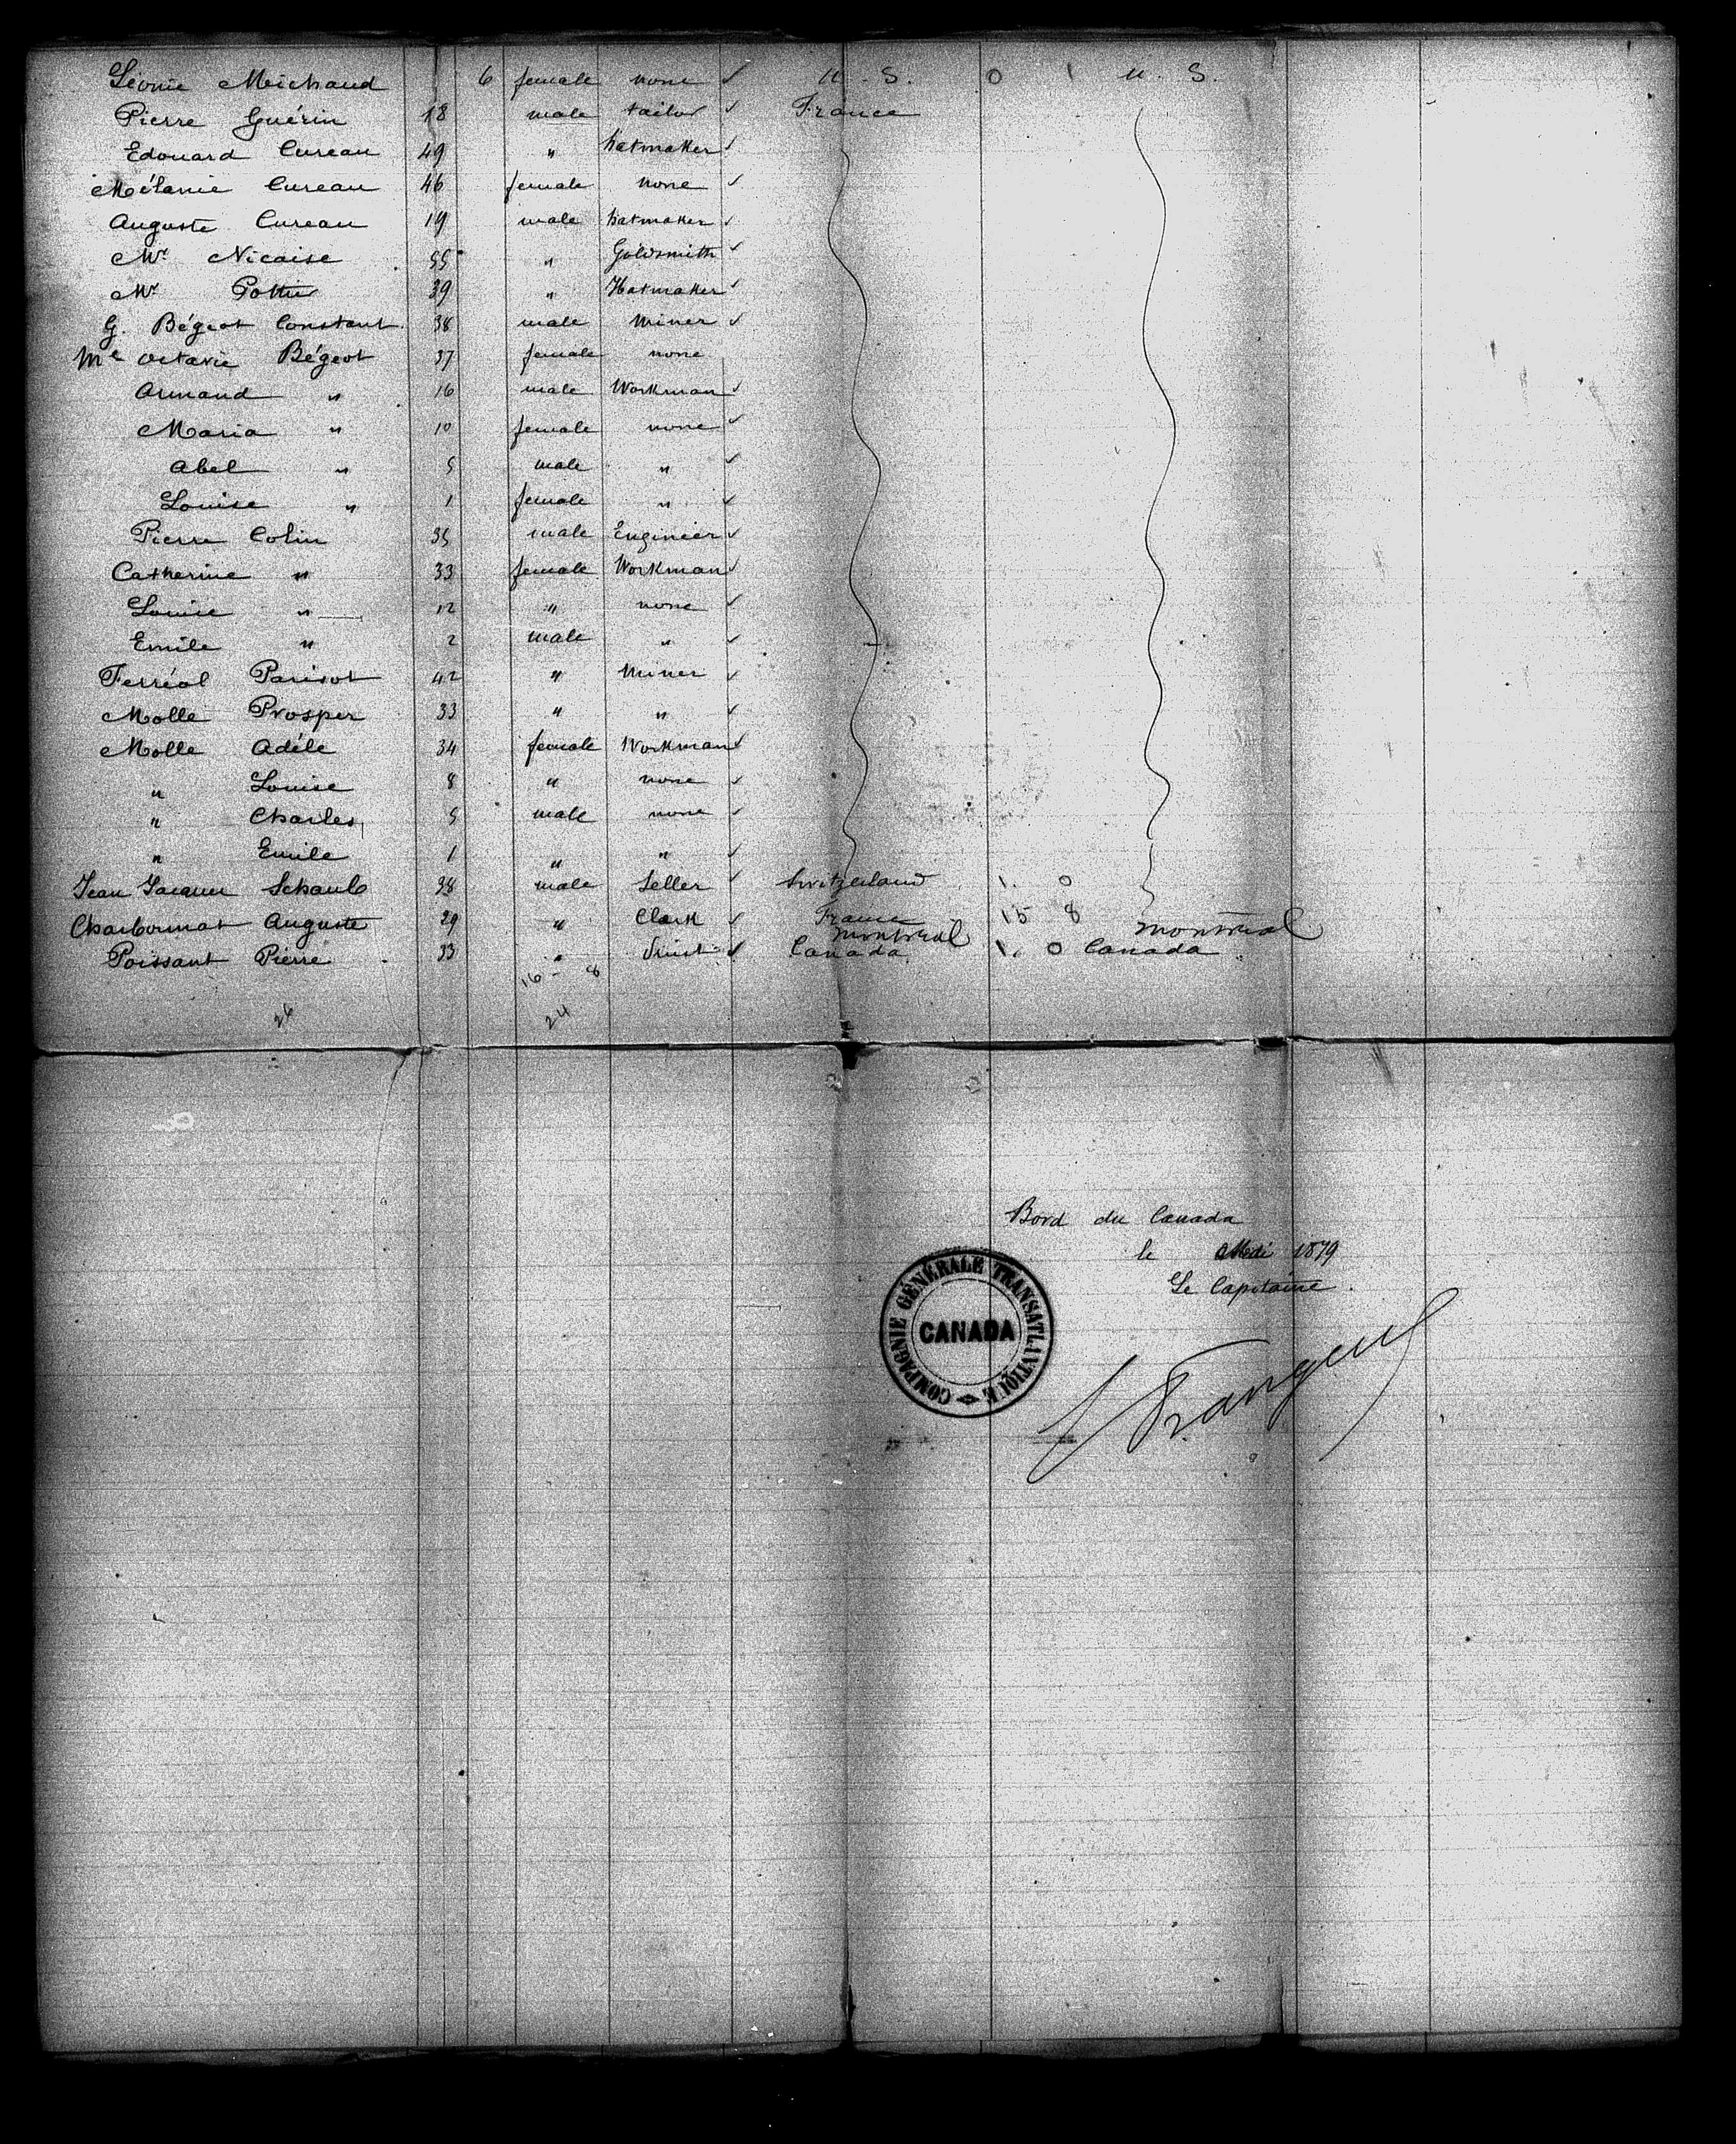 Léonie Michaud 6 female none ✓ U. S. 0 1 U. S.
Pierre Guérin 18 male tailor ✓ France
Edouard Cureau 49 " hatmaker ✓
Mélanie Cureau 46 female none ✓
Auguste Cureau 19 male hatmaker ✓
Mr Nicaise 55 " Goldsmith ✓
Mr 39 " Hatmaker ✓
G. Bégeot Constant 38 male Miner ✓
Me Octavie Bégeot 37 female none
Armand " 16 male Workman ✓
Maria " 10 female none ✓
Abel " 5 male " ✓
Louise " 1 female " ✓
Pierre Colin 35 male Enginier ✓
Catherine " 33 female Workman ✓
Louise " 12 " none ✓
Emile " 2 male " ✓
Ferréol Parisot 42 " Miner ✓
Molle Prosper 33 " " ✓
Molle Adéle 34 female Workman ✓
" Louise 8 " none ✓
" Charles 5 male none ✓
" Emile 1 " " ✓
Jean Jacques Schaub 38 male Seller ✓ Switzerland 1. 0
Charbonnat Auguste 29 " Clark ✓ France 15 8
Montreal Montreal
Poissant Pierre 33 " ✓ Canada 1. 0 Canada
16 - 8
26 24
Bord du Canada
le Mai 1879
Le Capitaine.
COMPAGNIE GÉNÉRALE TRANSATLANTIQUE
CANADA